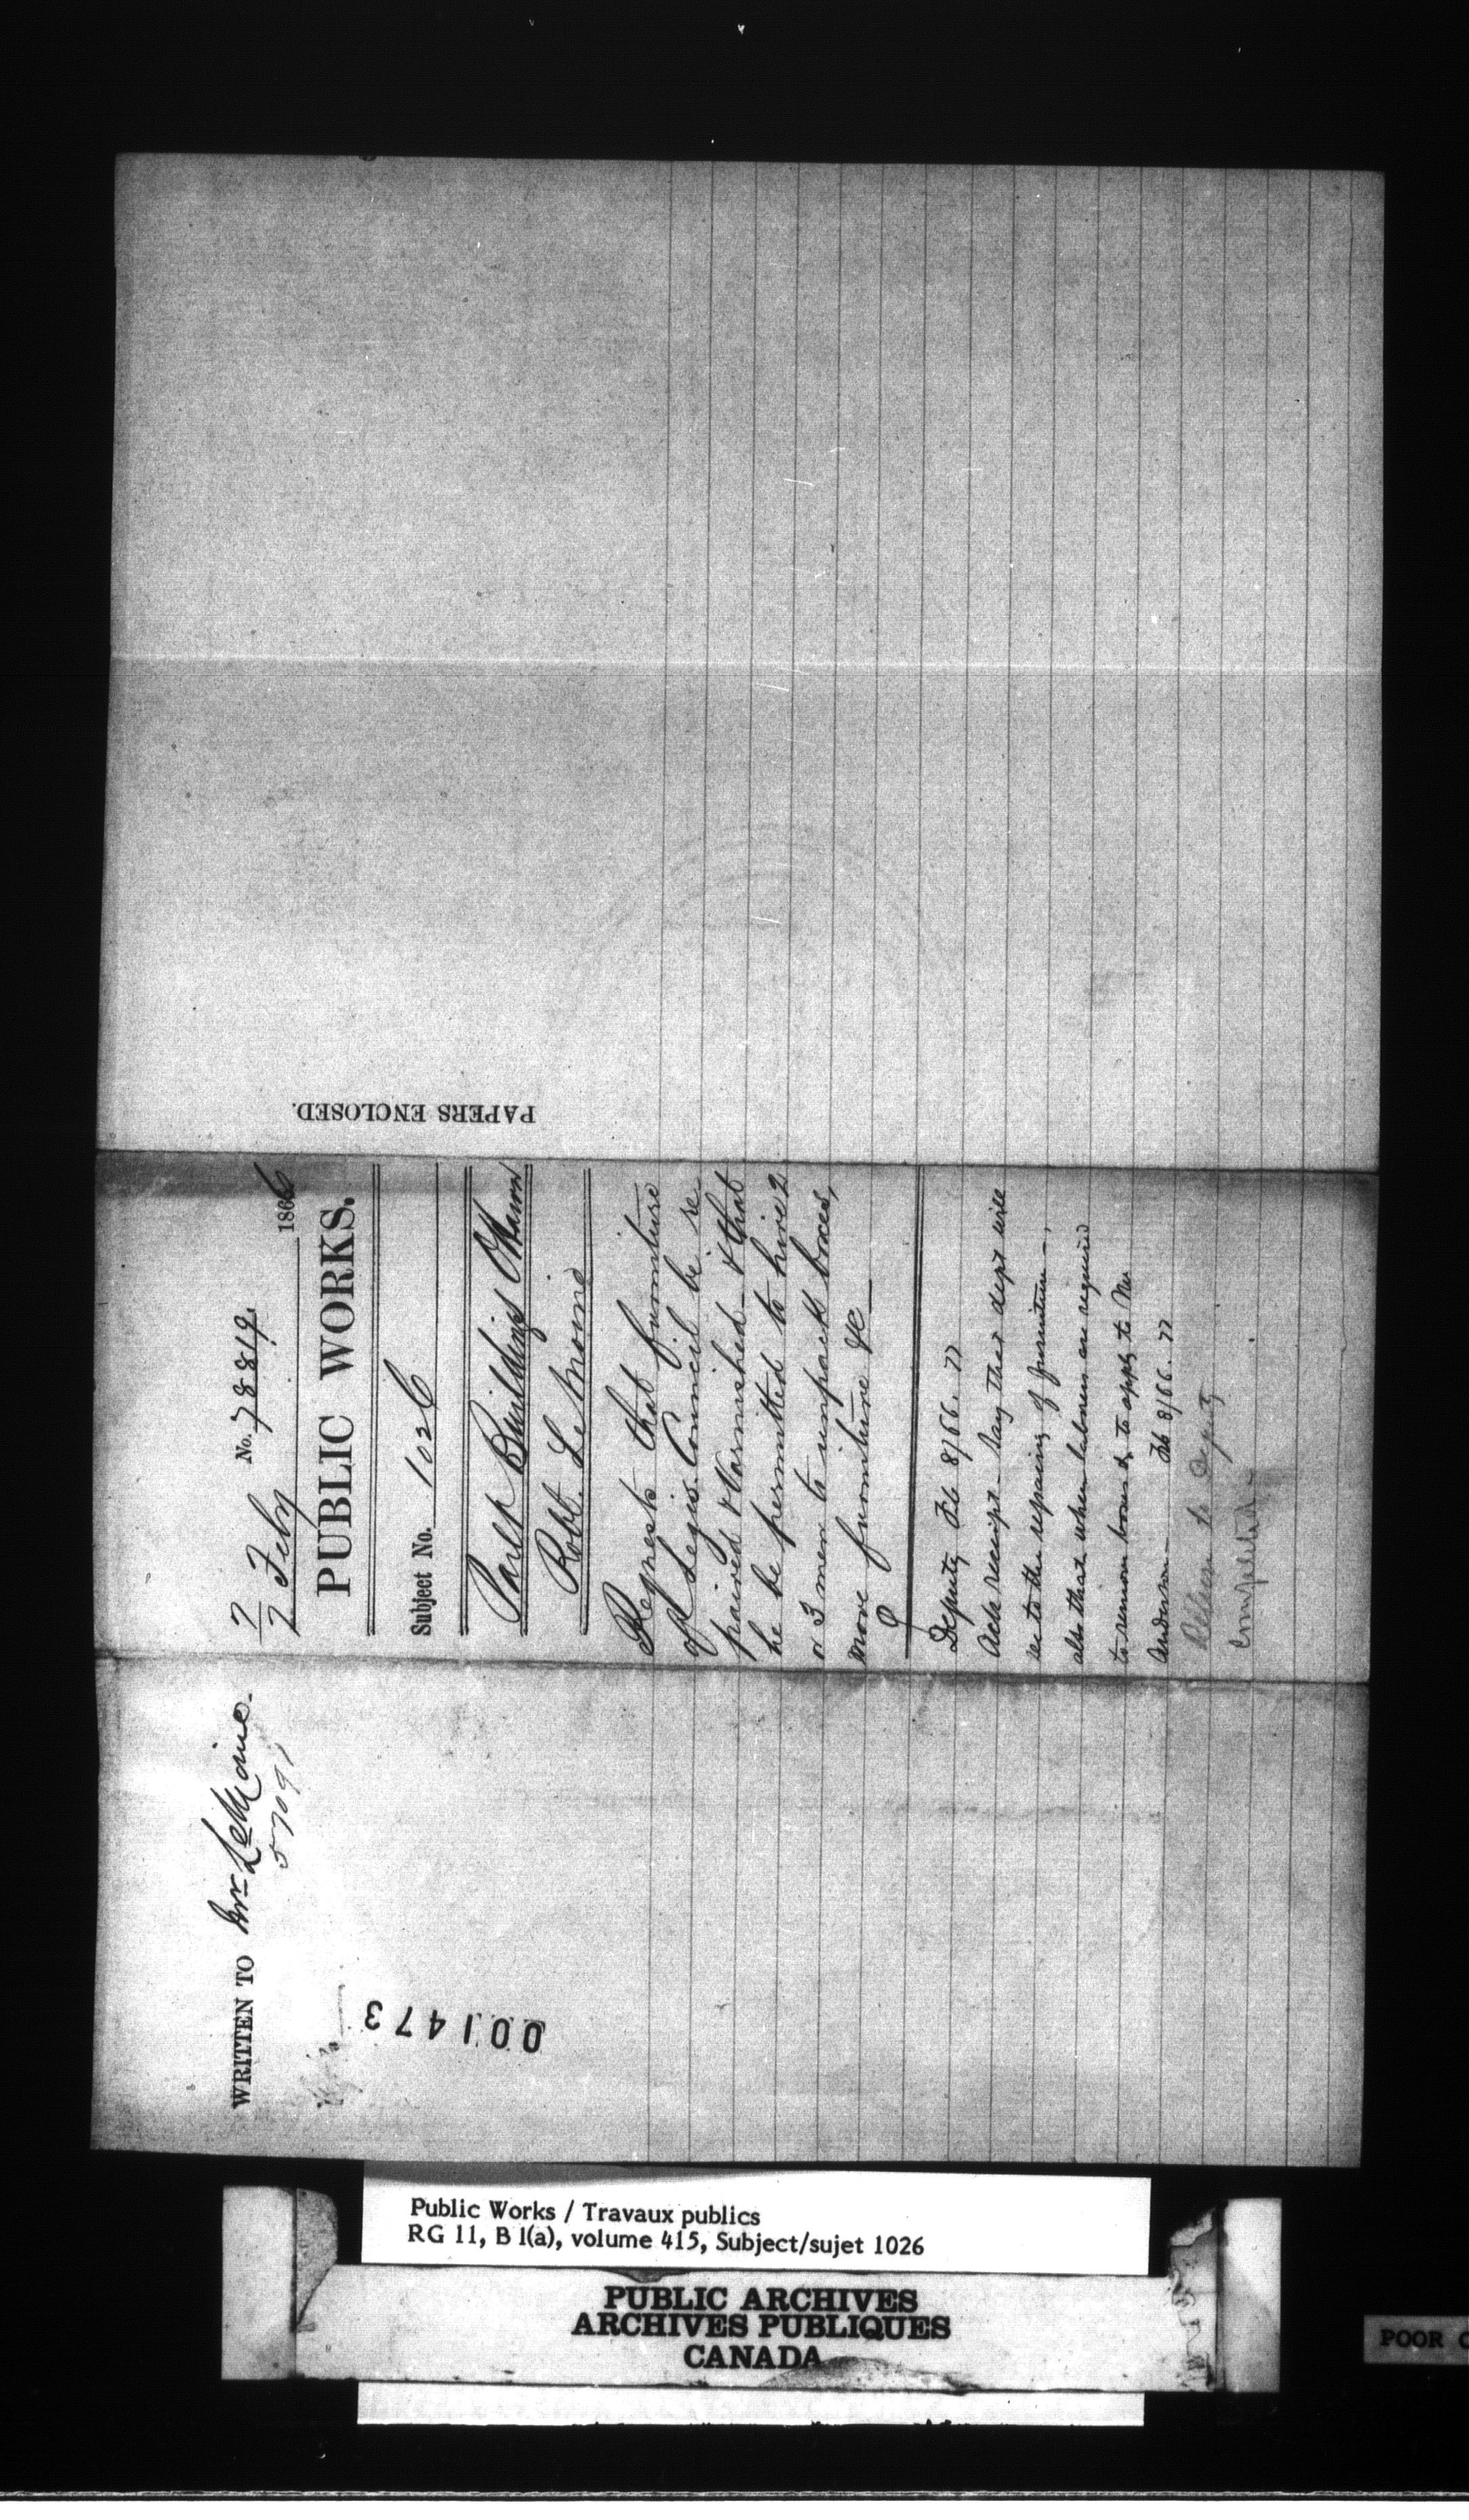 WRITTEN TO Mr LeMoine.
57091
001473
7
7 Feby No. 78819. 1866
PUBLIC WORKS.
Subject No. 1026
Parlt Buildings Ottawa
Robt. LeMoine
Requests that furniture
of Legis. Council be re-
paired & varnished - & that
he be permitted to hire 2
or 3 men to unpack boxes,
move furniture &c
Deputy Fb 8/66.
Ack receipt - Say that dept will
see to the repairing of furniture -,
also that when laborers are required
to remove boxes &c to apply to Mr
Fb 8/66.
Return to Deputy
Completed.
PAPERS ENCLOSED.
Public Works / Travaux publics
RG 11, B 1(a), volume 415, Subject/sujet 1026
PUBLIC ARCHIVES
ARCHIVES PUBLIQUES
CANADA
POOR